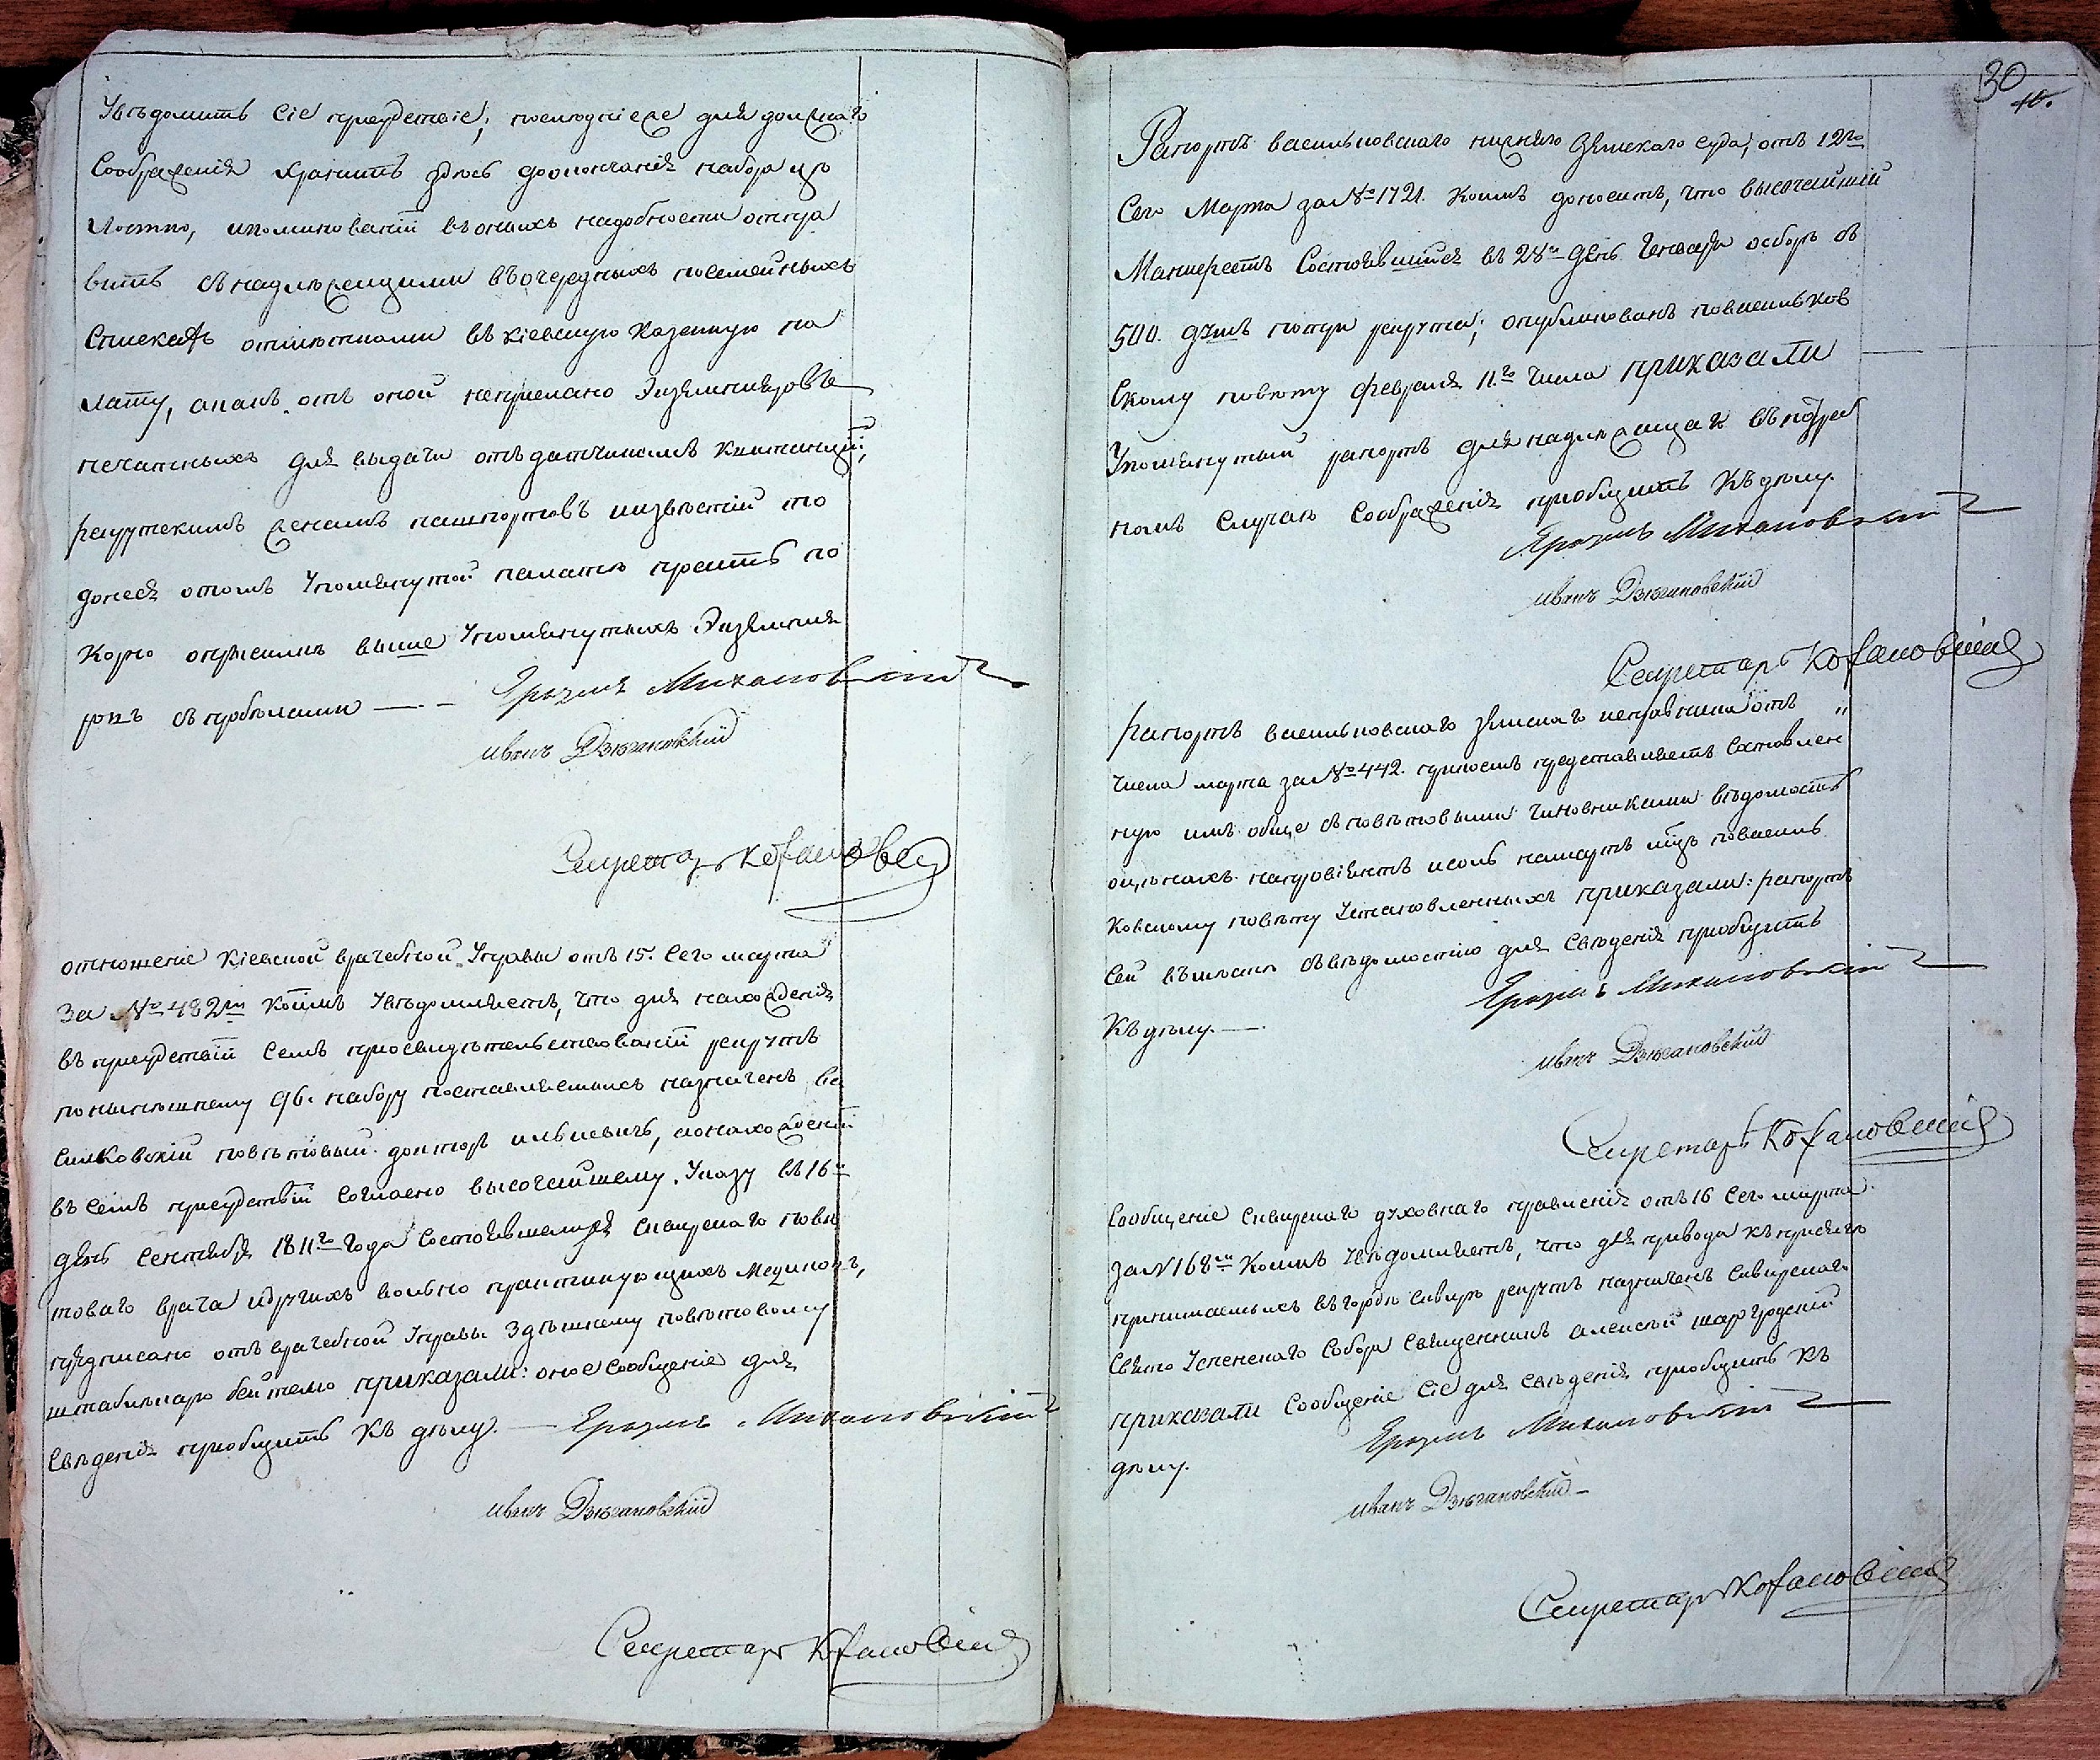 Увѣдомить сіе присудствіе, последніеже для должнаго
Соображенія хранить здесь доокончанія набора изъ
, иполиковеніи въоныхъ надобности отпра
вить съ надлежащими въочередныхъ посемейныхъ
Спискахъ отмѣтками въ Кіевскую Казенную па
лату, акакъ отъ оной неприслано Экземпляровъ
печатныхъ для выдачи отъдатчикамъ Квитанцій;
рекрутскимъ женамъ пашпортовъ иизвѣстій то
донеся отомъ Упомянутой палатѣ просить по
Корно оприсылкѣ выше Упомянутыхъ Экземпля
ровъ съ пробѣлами —
Еразмъ Михаловскій
Иванъ Дзюгановскій
Секретарь
отношеніе Кіевской врачебной Управы отъ 15. Сего марта
За №482м Коимъ Увѣдомляетъ, что для нахожденія
въ присудствіи Семъ приосвидѣтельствованіи рекрутъ
понынѣшнему 96. набору поставляемыхъ назначенъ Ва
силковскій повѣтовый докторъ илькевичъ, аонахожденіи
въ семъ присудствіи Согласно высочайшему Указу въ 16й
день Сентября 1811го года Состоявшемуся Сквирскаго повѣ
товаго врача идругихъ вольно практикующихъ Медиковъ,
предписано отъ врачебной Управы Здѣшнему повѣтовому
штаблекарю бейтелю приказали: оное сообщеніе для
Свѣденія приобщить Къ дѣлу. —
Еразмъ Михаловскій
Иванъ Дзюгановскій
Секретарь
30
Рапортъ васильковскаго нижняго Земскаго Суда, отъ 12го
Сего Марта за №1721. Коимъ доноситъ, что высочайшій
Манифестъ Состоявшійся въ 28й день Генваря осборѣ съ
500. душъ потри рекрута; опубликованъ повасильков
Скому повѣту февраля 11.го Числа приказали
Упомянутый рапортъ для надлежащаго въ потреб
номъ Случаѣ Соображенія приобщить Къ дѣлу.
Еразмъ Михаловскій
Иванъ Дзюгановскій
Секретарь
рапортъ васильковскаго земскаго исправника отъ "
Числа марта за №442. прикоемъ представляетъ Составлен
ную имъ обще съ повѣтовыми Чиновниками вѣдомость
оцѣнахъ напровіянтъ исоль намартъ мцъ повасиль
Ковскому повѣту Установленныхъ приказали: рапортъ
Сей въместѣ съ вѣдомостію для Свѣденія приобщить
Къ дѣлу. —
Еразмъ Михаловскій
Иванъ Дзюгановскій
Секретарь
Сообщеніе Сквирскаго духовнаго правленія отъ 16 Сего марта
за №168м Коимъ Увѣдомляетъ, что для привода къ присягѣ
принимаемыхъ въ городѣ Сквирѣ рекрутъ назначенъ Сквирскаго
Свято Успенскаго Собора Священникъ алексей шаргородскій
приказали Сообщеніе Сіе для Свѣденія приобщить Къ
дѣлу.
Еразмъ Михаловскій
Иванъ Дзюгановскій
Секретарь